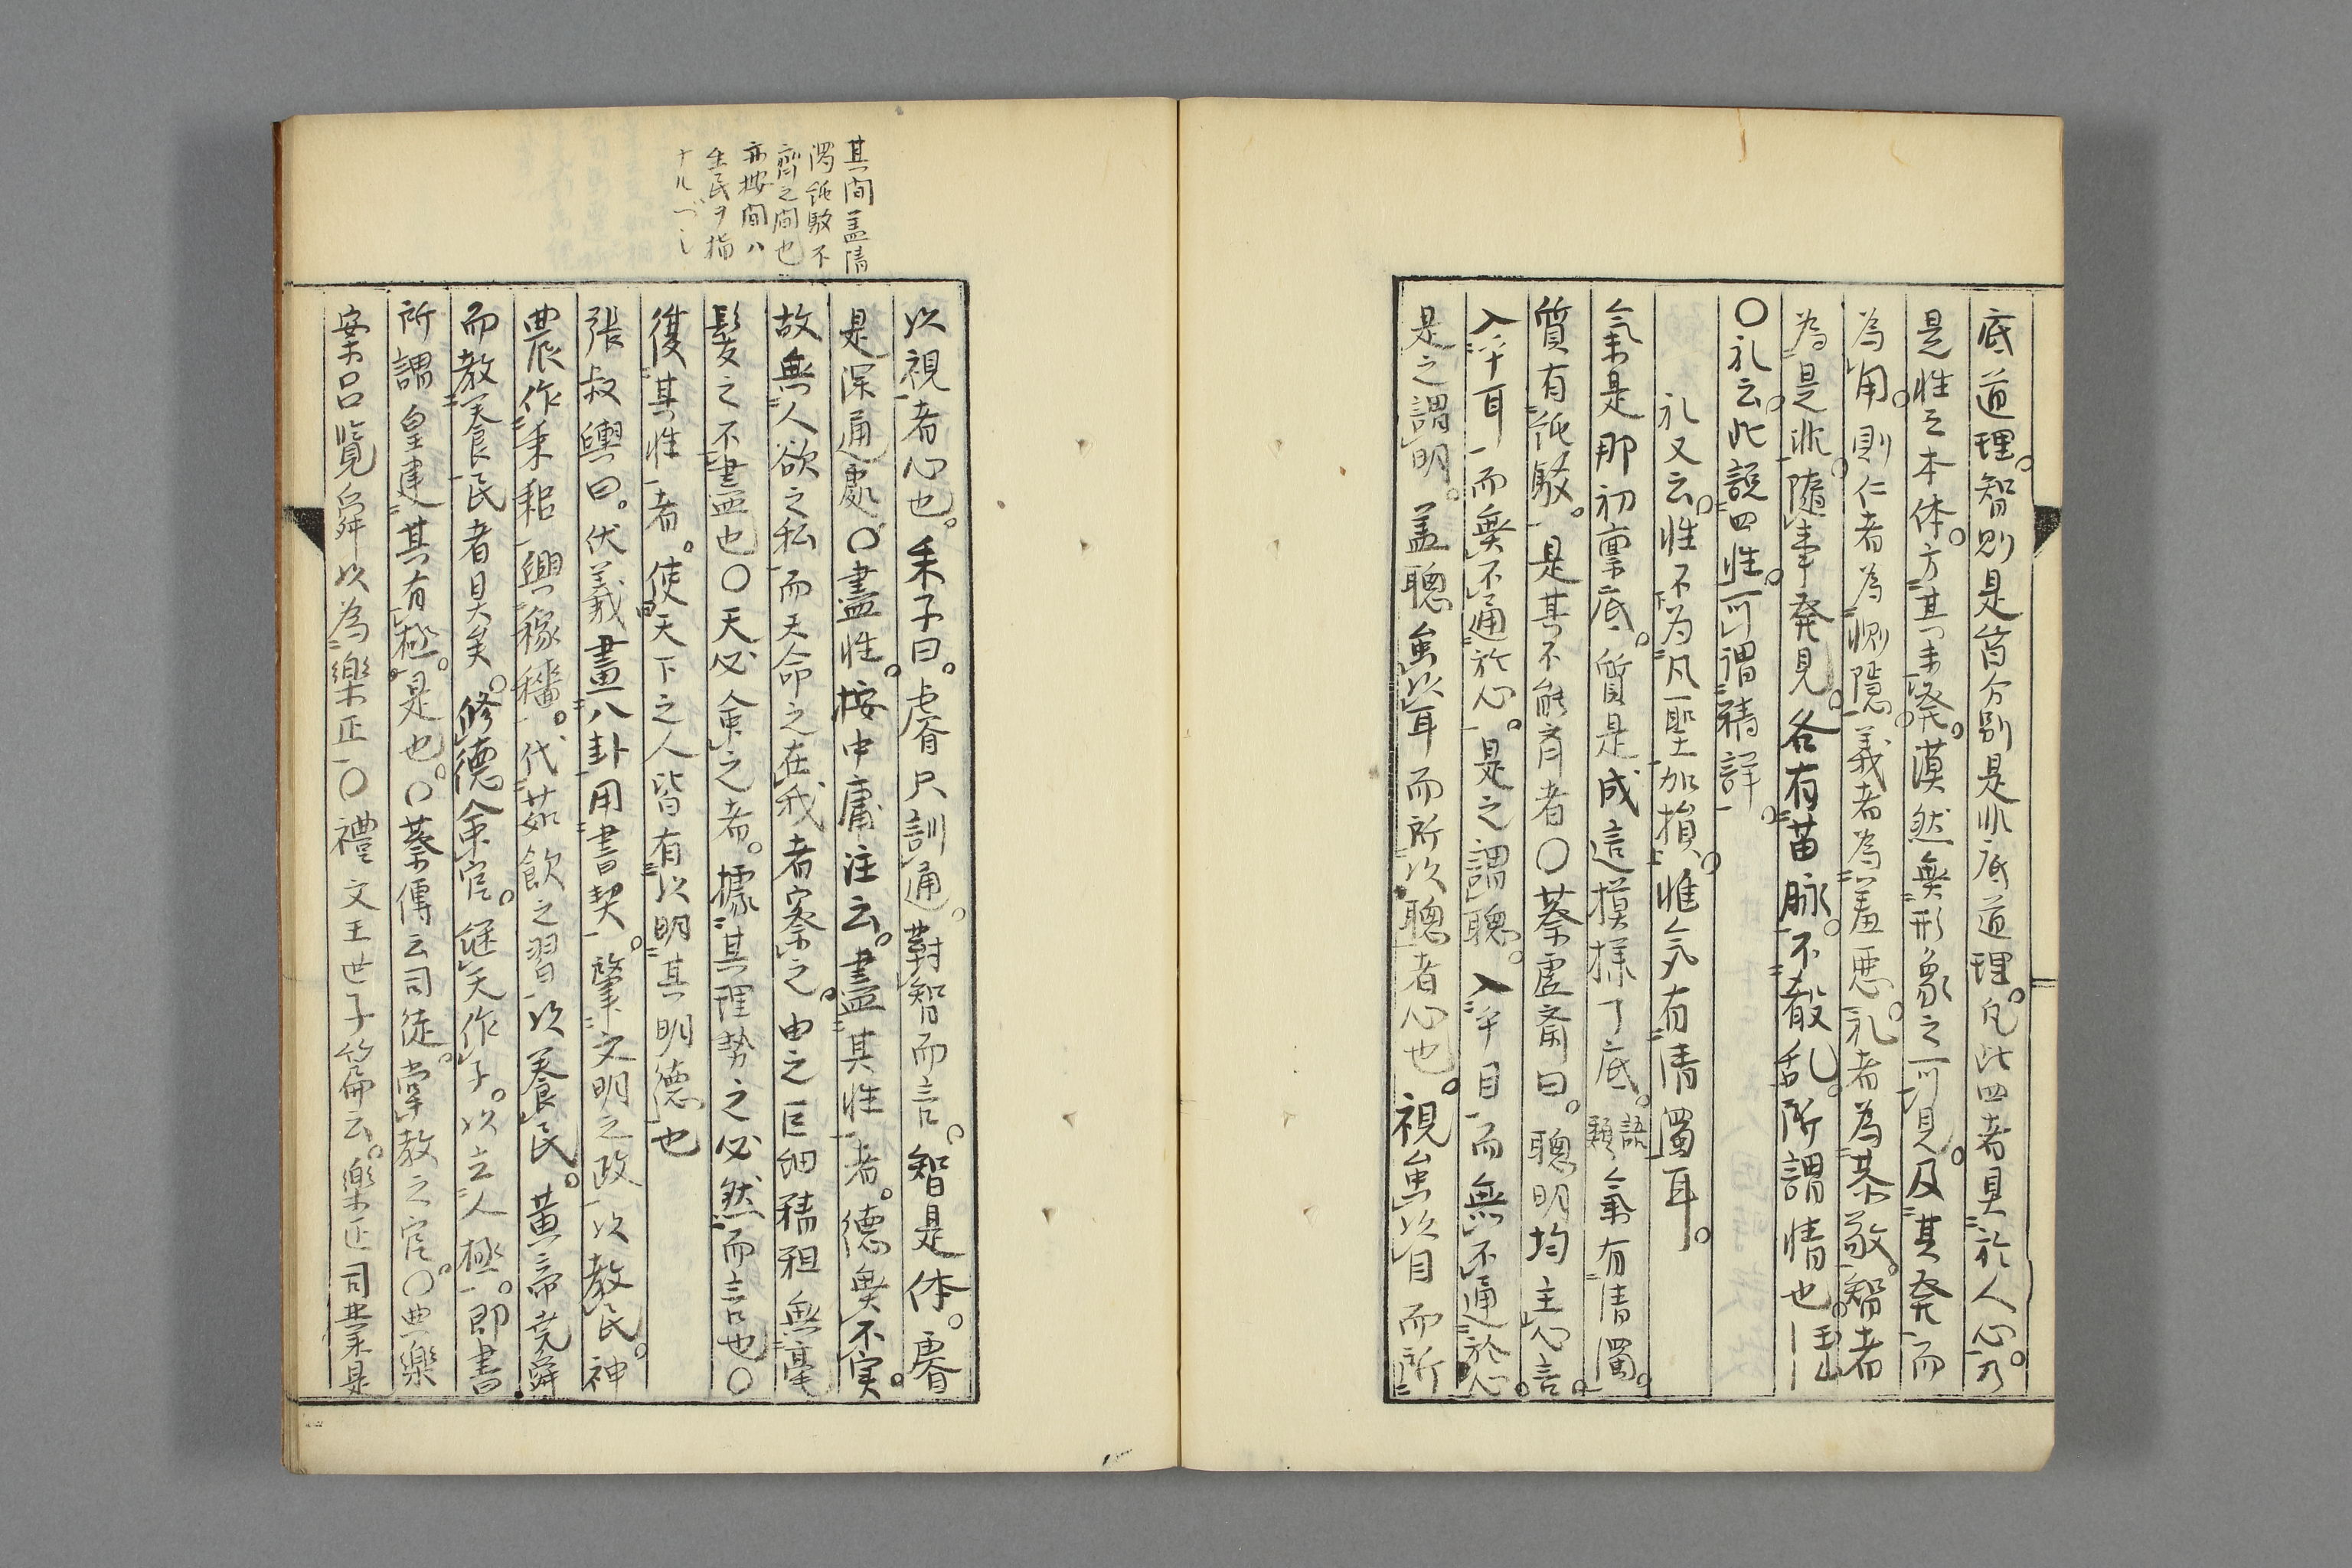 底道理智則是箇分別是非底道理凡此四者具於人心乃
是性之本体方其未発漠然無形象之可見及其発而
為用則仁者為惻隠義者為羞悪礼者為恭敬智者
為是非随事発見各有苗脉不殽乱所謂情也
〇礼云此説四性可謂精詳
礼又云性不为凡聖加損惟気有清濁耳
氣是那初禀底質是成這摸様了底語類氣有清濁
質有純駁是其不能斉者〇蔡虚斎曰聰明均主心言
入乎耳而無不通於心是之謂聰入乎目而無不通於心
是之謂明盖聰虽以耳而所以聰者心也視虽以目而所
以視者心也朱子曰睿只訓通對智而言智是体睿
是深通處〇盡性按中庸注云盡其性者德無不実
故無人欲之私而天命之在我者察之由之巨細精粗無毫
髪之不盡也〇天必命之者據其理勢之必然而言也〇
復其性者使天下之人皆有以明其明德也
張叔輿曰伏羲畫八卦用書契肇文明之政以教民神
農作耒耜興稼穡代茹飲之習以養民黄帝尭舜
而教養民者具矣修德命官継天作子以立人極即書
所謂皇建其有極是也〇蔡傳云司徒掌教之官〇典樂
案呂覧舜以為樂正〇禮文王世子篇云樂正司業是
其間盖清
濁純駁不
齊之間也
亦按間ハ
生民ヲ指
ナルベシ